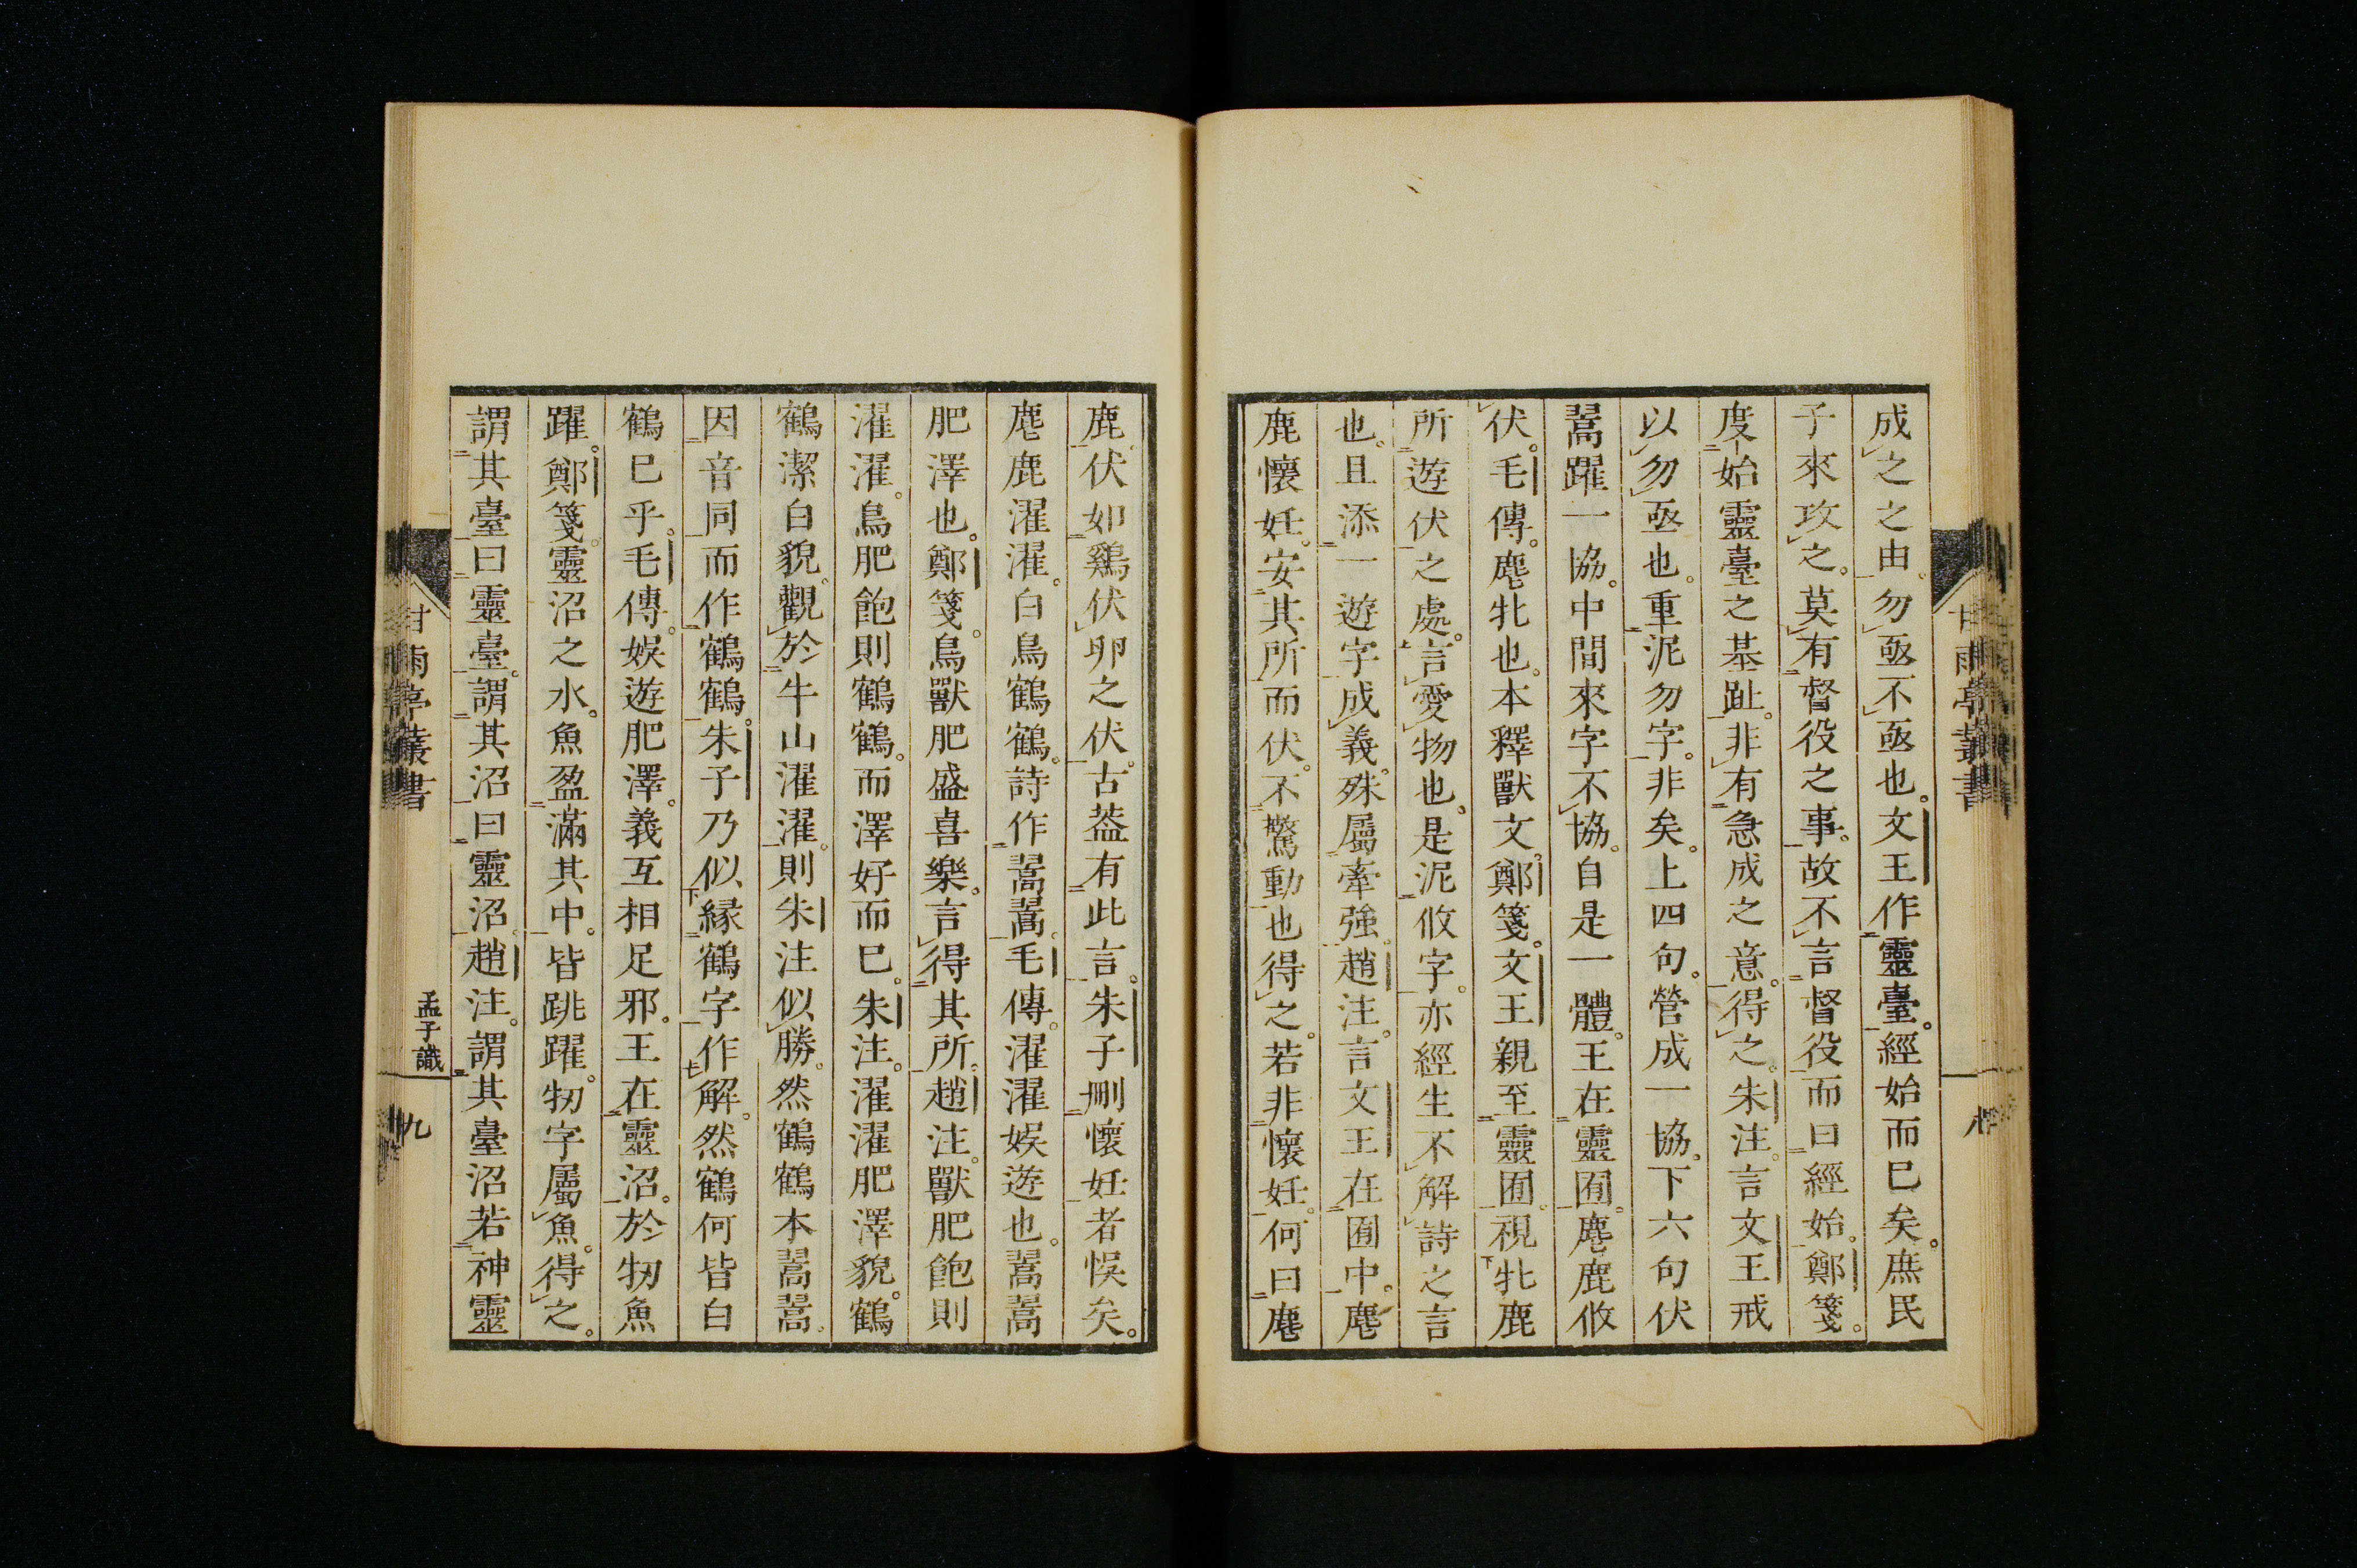 成之之由勿亟不亟也。文王作靈臺。經始而已矣。庶民
子來攻之。莫有督役之事。故不言督役而曰經始。鄭箋。
度始靈臺之基趾。非有急成之意。得之。朱注。言文王戒
以勿亟也。重泥勿字。非矣。上四句。營成一協。下六句伏
翯躍一協。中間來字不協。自是一體。王在靈囿。麀鹿攸
伏。毛傳。麀牝也。本釋獸文。鄭箋。文王親至靈囿。視牝鹿
所遊伏之處。言愛物也。是泥攸字。亦經生不解詩之言
也。且添一遊字成義。殊屬牽強。趙注。言文王在囿中。麀
鹿懷妊。安其所而伏。不驚動也得之。若非懷妊。何曰麀
鹿伏如鷄伏卵之伏。古葢有此言。朱子刪懷妊者悞矣。
麀鹿濯濯。白鳥鶴鶴。詩作翯翯。毛傳。濯濯娛遊也。翯翯
肥澤也。鄭箋。鳥獸肥盛喜樂。言得其所。趙注。獸肥飽則
濯濯。鳥肥飽則鶴鶴。而澤好而已。朱注。濯濯肥澤貌。鶴
鶴潔白貌。觀於牛山濯濯。則朱注似勝。然鶴鶴本翯翯。
因音同而作鶴鶴。朱子乃似緣鶴字作解。然鶴何皆白
鶴已乎。毛傳。娛遊肥澤。義互相足邪。王在靈沼。於牣魚
躍。鄭箋。靈沼之水。魚盈滿其中。皆跳躍。牣字屬魚。得之。
謂其臺曰靈臺。謂其沼曰靈沼。趙注。謂其臺沼若神靈
甘雨亭叢書
孟子識
九